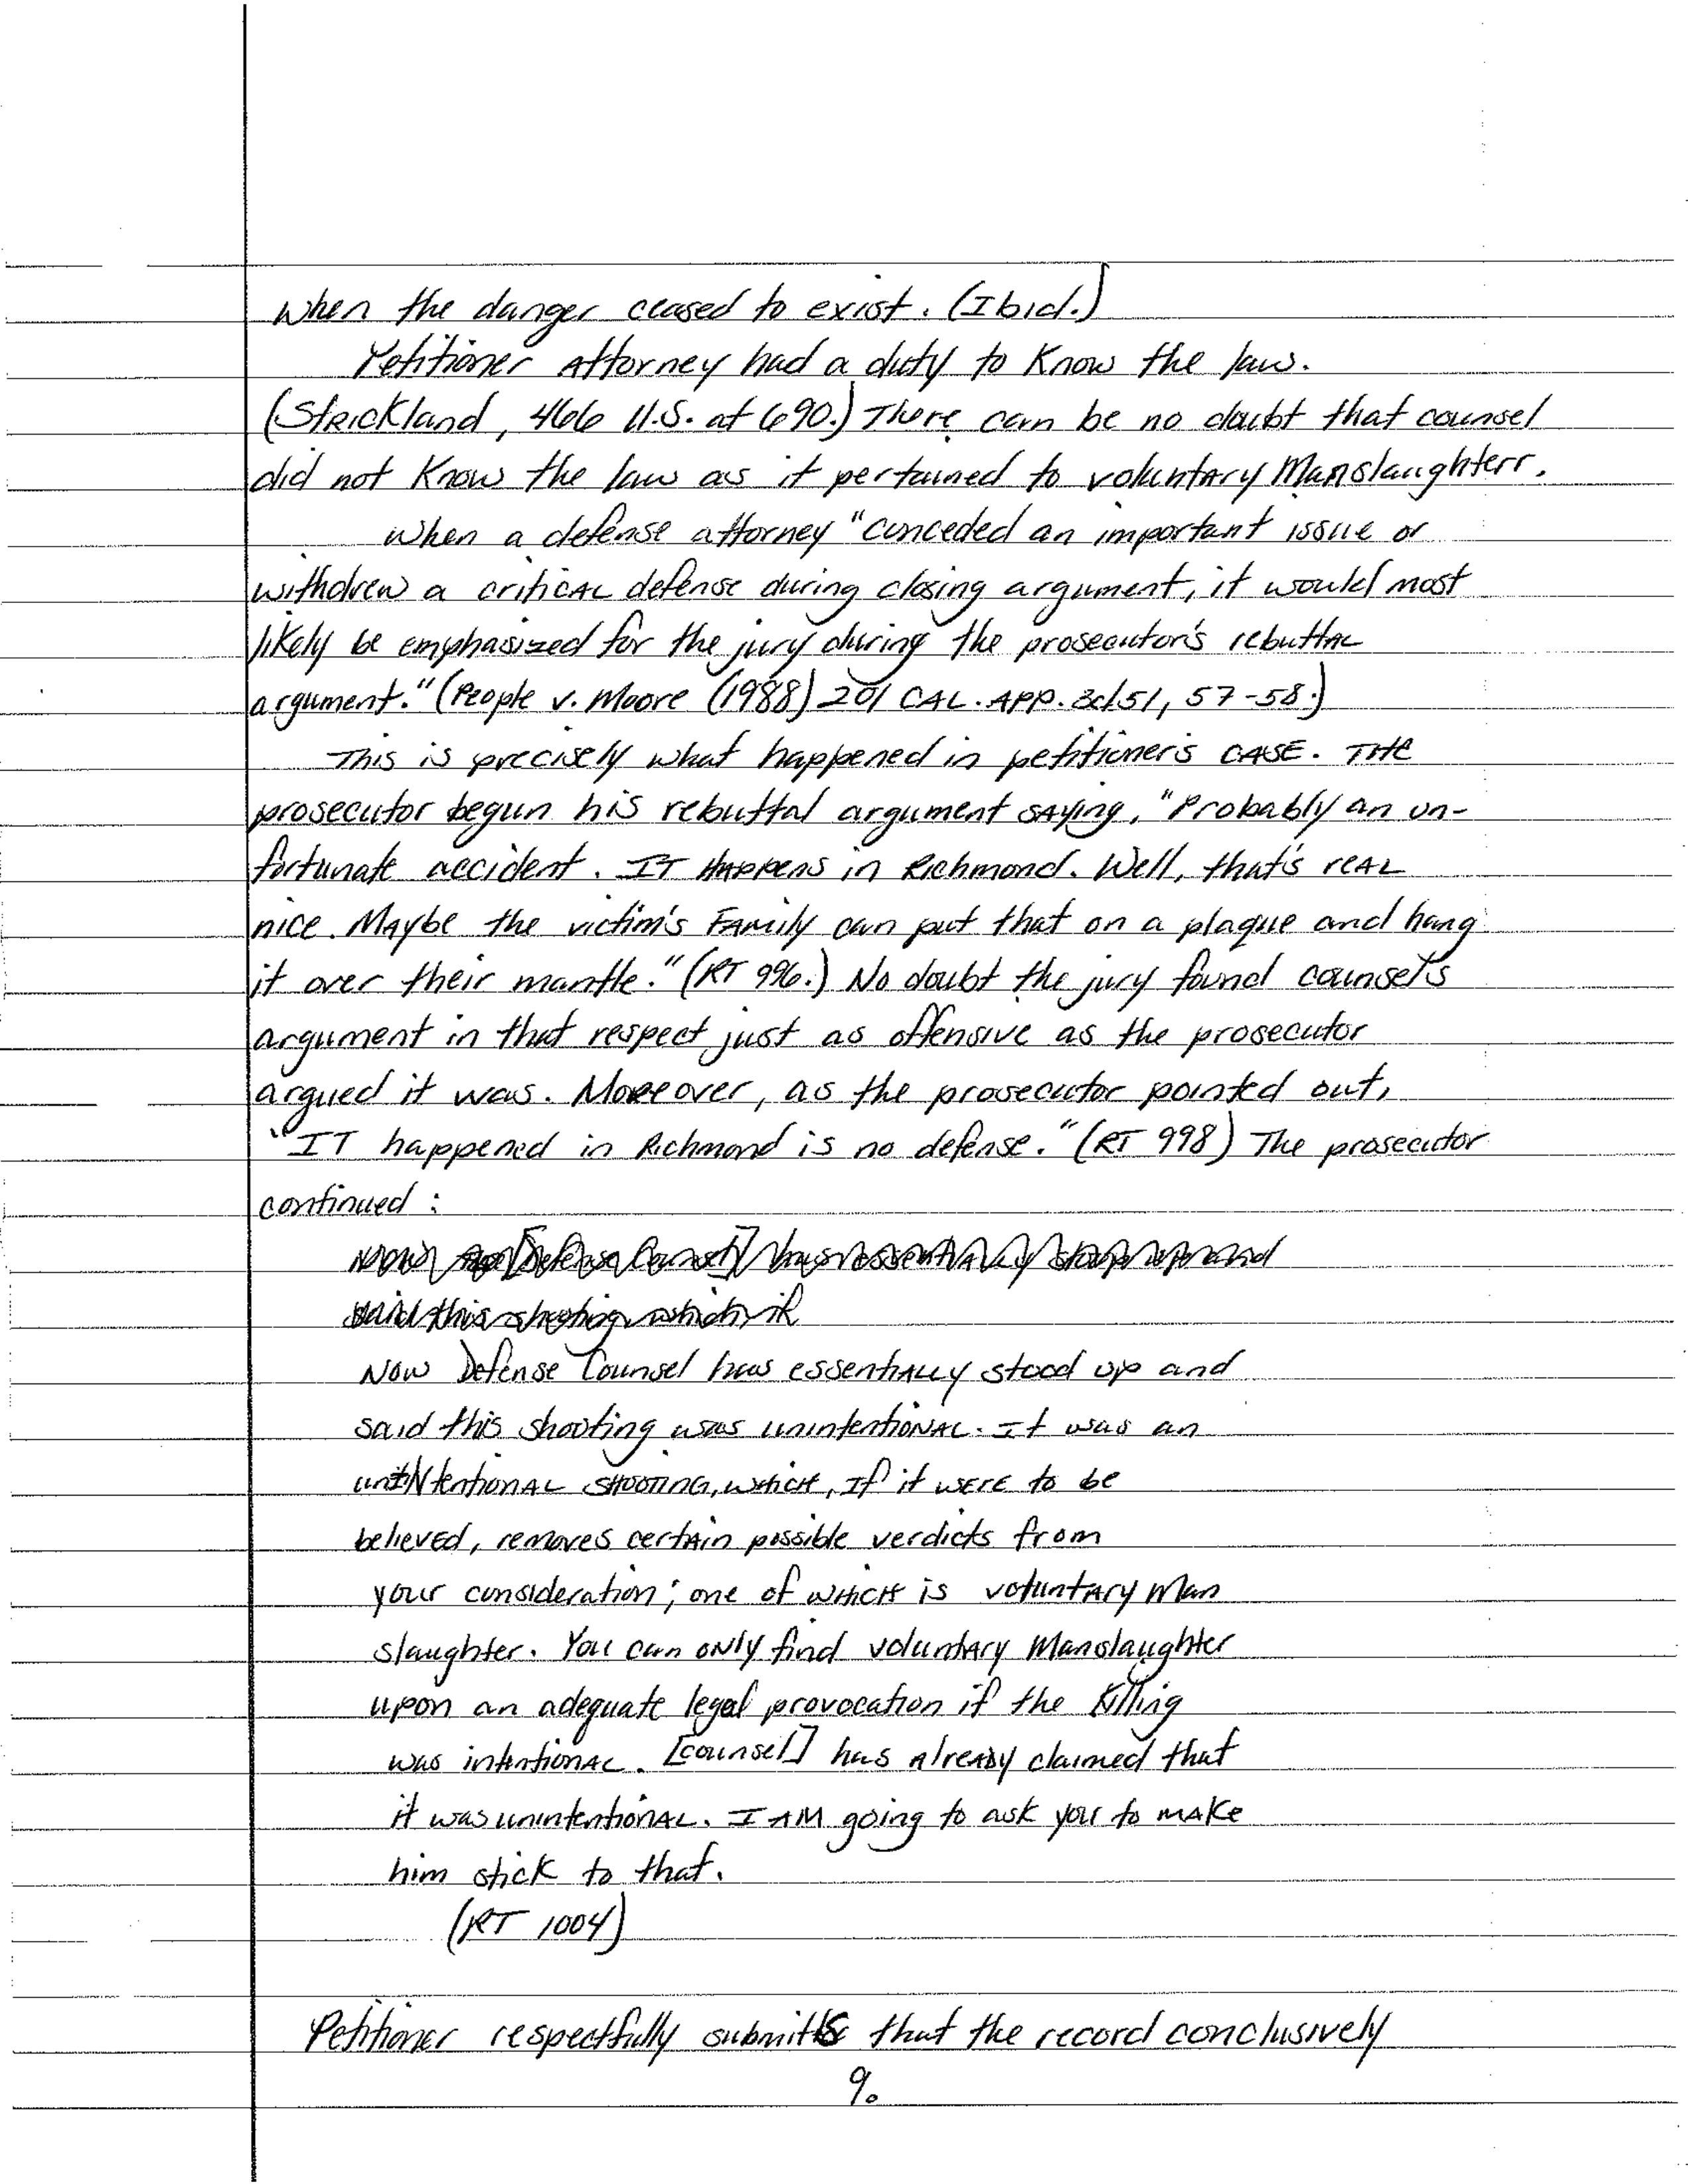 when the danger ceased to exist. (Ibid.)
Petitioner Attorney had a duty to know the law.
(Strickland, 466 U.S. at 690.) There can be no doubt that counsel
did not know the law as it pertained to voluntary Manslaughterr.
When a defense attorney "conceded an important issue or
withdrew a critical defense during closing argument, it would most
likely be emphasized for the jury during the prosecutor's rebuttal
argument." (People v. Moore (1988) 201 CAL. APP. 3d 51, 57-58.)
This is precisely what happened in petitioner's CASE. THE
prosecutor begun his rebuttal argument saying, "Probably an un-
fortunate accident. IT HAPPENS in Richmond. Well, that's real
nice. Maybe the victim's Family can put that on a plaque and hang
it over their mantle." (RT 996.) No doubt the jury found counsel's
argument in that respect just as offensive as the prosecutor
argued it was. Moreover, as the prosecutor pointed out,
"IT happened in Richmond is no defense." (RT 998) The prosecutor
continued:
[Defense Counsel] has essentially stood up and
said this shooting which if
Now Defense Counsel has essentially stood up and
said this shooting was unintentional. It was an
unintentional SHOOTING, WHICH, If it WERE to be
believed, removes certain possible verdicts from
your consideration; one of WHICH is voluntary Man
slaughter. You can only find voluntary Manslaughter
upon an adequate legal provocation if the Killing
was intentional. [counsel] has Already claimed that
it was unintentional. I AM going to ask you to make
him stick to that.
(RT 1004)
Petitioner respectfully submits that the record conclusively
9.